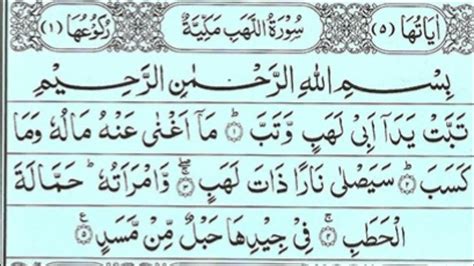 اٰيَاتُهَا (٥) سُوْرَةُ اللَّهَبِ مَكِّيَّةٌ رُكُوْعُهَا (١)
بِسْمِ اللهِ الرَّحْمٰنِ الرَّحِيْمِ
تَبَّتْ يَدَآ اَبِىْ لَهَبٍ وَّتَبَّ ۝١ مَآ اَغْنٰى عَنْهُ مَالُهٗ وَمَا
كَسَبَ ۝٢ سَيَصْلٰى نَارًا ذَاتَ لَهَبٍ ۝٣ وَّامْرَاَتُهٗ ؕ حَمَّالَةَ
الْحَطَبِ ۝٤ فِىْ جِيْدِهَا حَبْلٌ مِّنْ مَّسَدٍ ۝٥